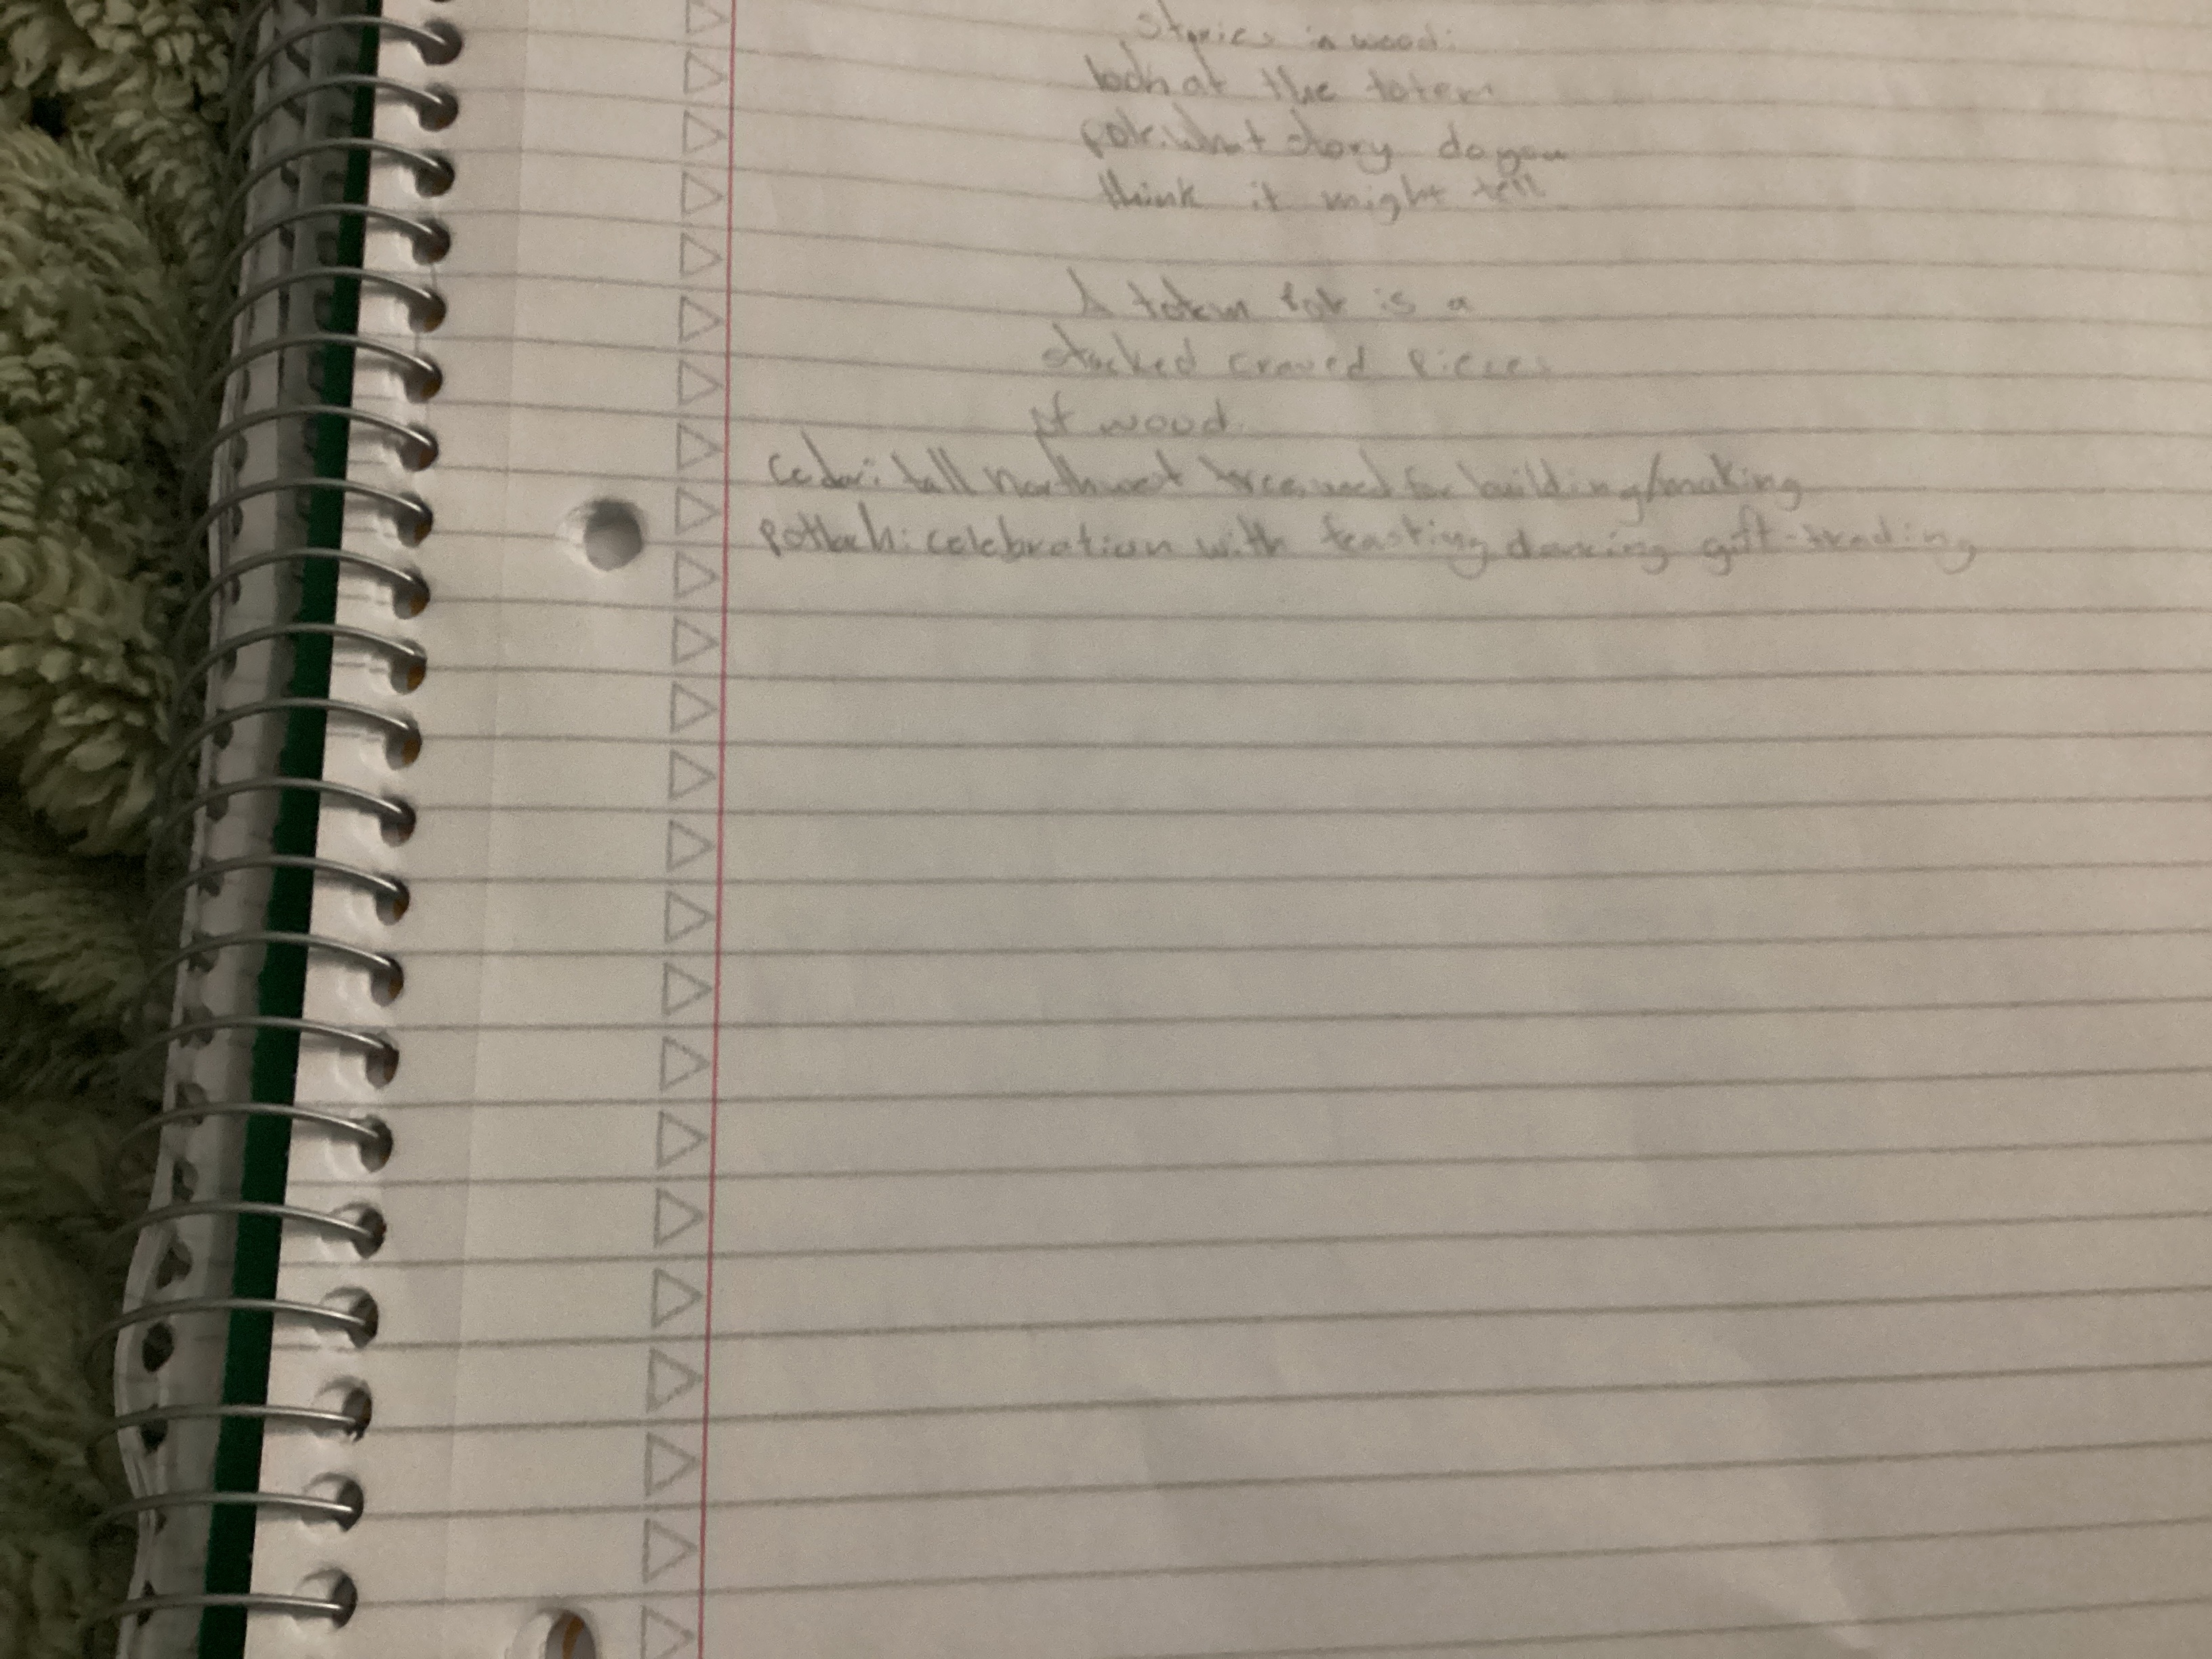 stories in wood:
look at the totem
pole. what story do you
think it might tell
A totem pole is a
stacked craved pieces
of wood.
Cedar: tall northwest tree, used for building/making
potlach: celebration with feasting dancing gift-trading